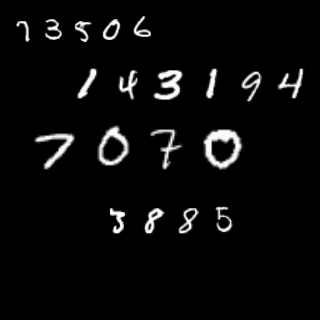 73506
143194
7070
3885